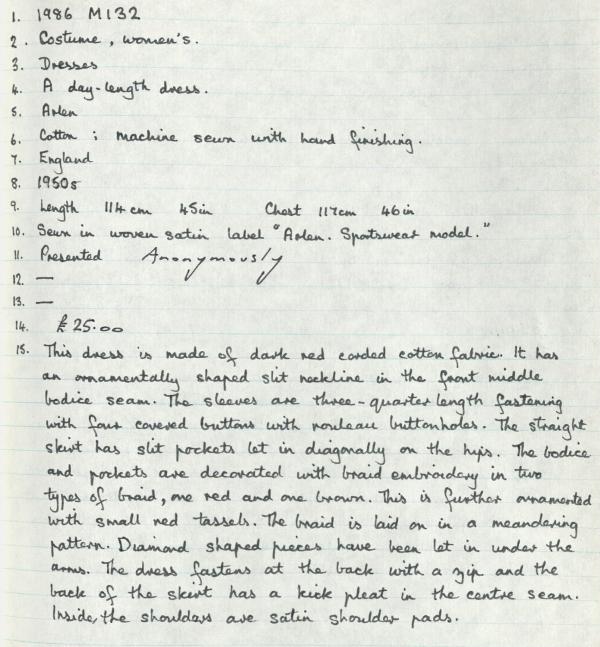 1. 1986 M132
2. Costume, women's.
3. Dresses
4. A day-length dress.
5. Arlen
6. Cotton; machine sewn with hand finishing.
7. England
8. 1950s
9. Length 114 cm 45in Chest 117cm 46in
10. Sewn in woven satin label "Arlen. Sportswear model."
11. Presented Anonymously
12. —
13. —
14. £25.00
15. This dress is made of dark red corded cotton fabric. It has
an ornamentally shaped slit neckline in the front middle
bodice seam. The sleeves are three-quarter length fastening
with four covered buttons with rouleau buttonholes. The straight
skirt has slit pockets let in diagonally on the hips. The bodice
and pockets are decorated with braid embroidery in two
types of braid, one red and one brown. This is further ornamented
with small red tassels. The braid is laid on in a meandering
pattern. Diamond shaped pieces have been let in under the
arms. The dress fastens at the back with a zip and the
back of the skirt has a kick pleat in the centre seam.
Inside, the shoulders are satin shoulder pads.